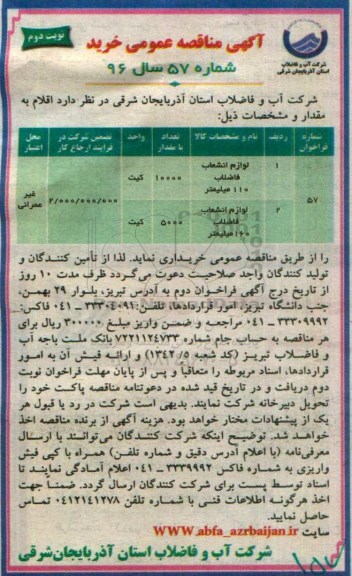 نوبت دوم
آگهی مناقصه عمومی خرید
شماره ۵۷ سال ۹۶
شرکت آب و فاضلاب
استان آذربایجان شرقی
شرکت آب و فاضلاب استان آذربایجان شرقی در نظر دارد اقلام به
مقدار و مشخصات ذیل:
شماره فراخوان ردیف نام و مشخصات کالا تعداد یا مقدار واحد تضمین شرکت در فرایند ارجاع کار محل اعتبار
۵۷ ۱ لوازم انشعاب فاضلاب ۱۱۰ میلیمتر ۱۰۰۰۰ کیت ۲/۰۰۰/۰۰۰/۰۰۰ غیر عمرانی
۲ لوازم انشعاب فاضلاب ۱۶۰ میلیمتر ۵۰۰۰ کیت
را از طریق مناقصه عمومی خریداری نماید. لذا از تأمین کنندگان و
تولید کنندگان واجد صلاحیت دعوت می‌گردد ظرف مدت ۱۰ روز
از تاریخ درج آگهی فراخوان دوم به آدرس تبریز، بلوار ۲۹ بهمن،
جنب دانشگاه تبریز، امور قراردادها، تلفن: ۳۳۳۰۴۰۹۱ ـ ۰۴۱ فاکس:
۳۳۳۰۹۹۹۲ ـ ۰۴۱ مراجعه و ضمن واریز مبلغ ۳۰۰۰۰۰ ریال برای
هر مناقصه به حساب جام شماره ۷۲۲۱۱۲۴۷۳۳ بانک ملت باجه آب
و فاضلاب تبریز (کد شعبه ۱۳۴۲/۵) و ارائه فیش آن به امور
قراردادها، اسناد مربوطه را متعاقباً و پس از پایان مهلت فراخوان نوبت
دوم دریافت و در تاریخ قید شده در دعوتنامه مناقصه پاکت خود را
تحویل دبیرخانه شرکت نمایند. بدیهی است شرکت در رد یا قبول هر
یک از پیشنهادات مختار خواهد بود. هزینه آگهی از برنده مناقصه اخذ
خواهد شد. توضیح اینکه شرکت کنندگان می‌توانند با ارسال
معرفی‌نامه (با اعلام آدرس دقیق و شماره تلفن) همراه با کپی فیش
واریزی به شماره فاکس ۳۳۳۹۹۹۲ ـ ۰۴۱ اعلام آمادگی نمایند تا
اسناد توسط پست برای شرکت کنندگان ارسال گردد. ضمناً جهت
اخذ هرگونه اطلاعات فنی با شماره تلفن ۰۴۱۲۱۴۱۲۷۸ تماس
حاصل نمایید.
سایت www.abfa_azrbaijan.ir
شرکت آب و فاضلاب استان آذربایجان شرقی